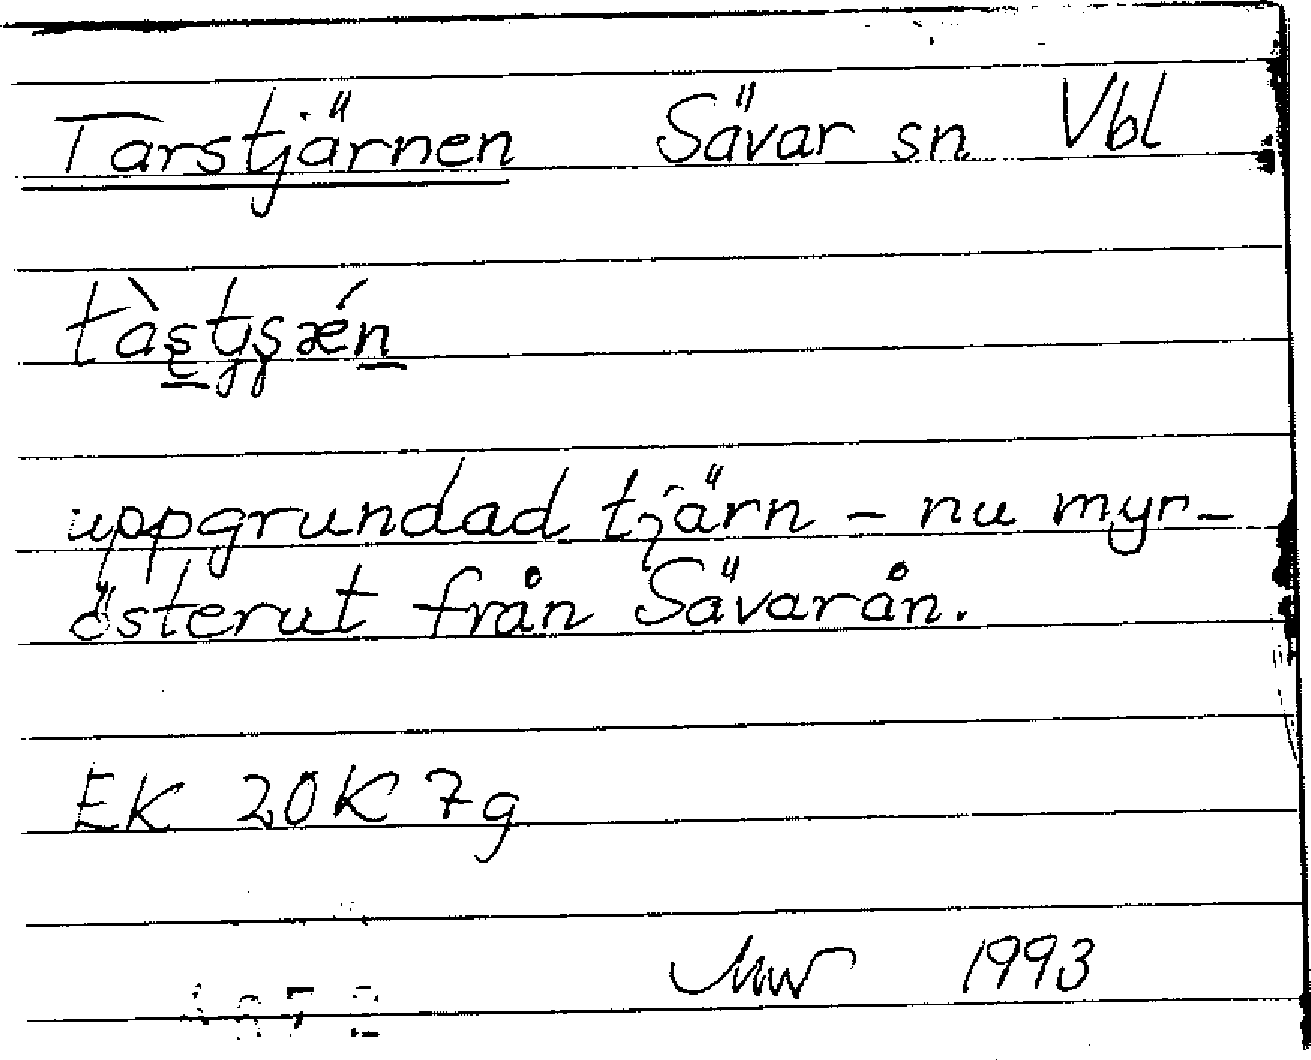 Tarstjärnen Sävar sn Vbl
tàstsǽn
uppgrundad tjärn - nu myr -
österut från Sävarån.
EK 20K 7g
1993